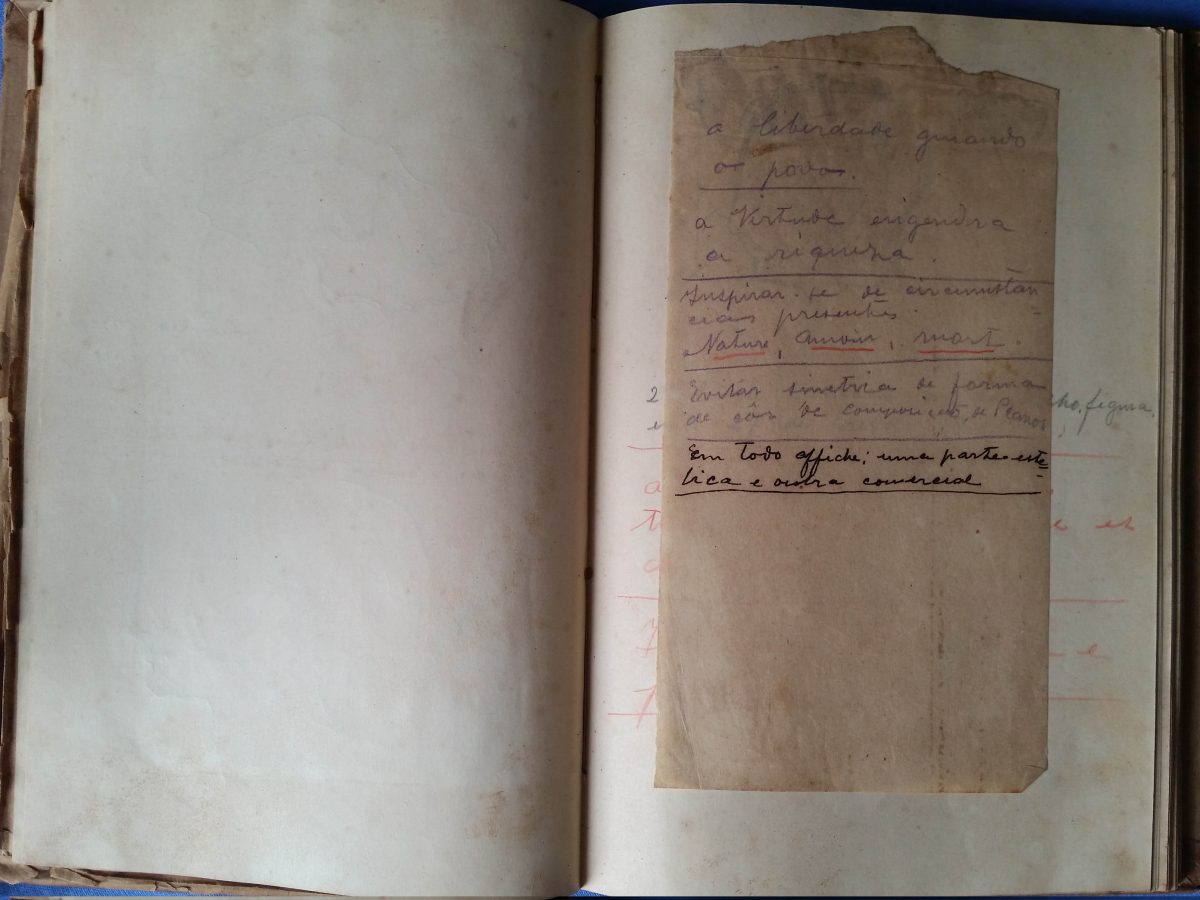 a liberdade guiando
o povo.
a Virtude engendra
a riqueza.
Inspirar-se de circumstan=
cias presentes.
Nature, amour, mort.
Evitar simetria de forma
de côr de composição, de Planos
2
figura,
Em todo affiche; uma parte este=
tica e outra comercial
a
e et
e